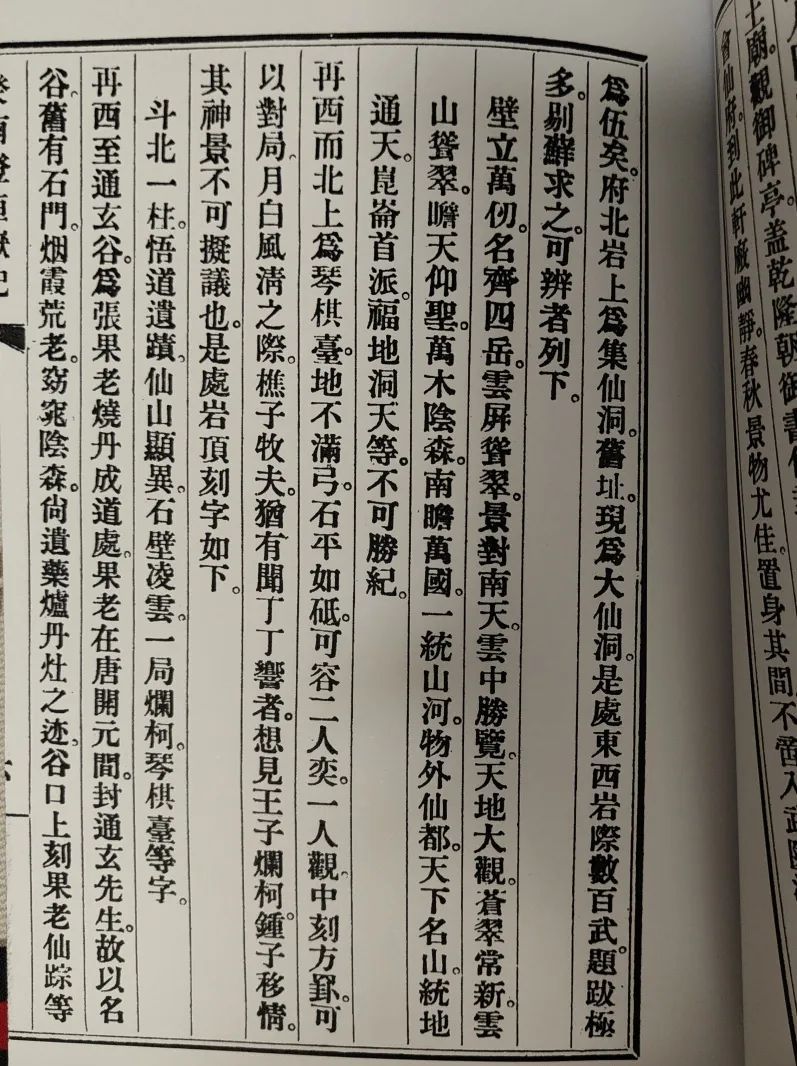 土廟。觀御碑亭。盖乾隆朝御書
會仙府。到此軒敞幽靜。春秋景物尤佳。置身其間。不啻入武陵
爲伍矣。府北岩上爲集仙洞。舊址。現爲大仙洞。是處東西岩際數百武。題跋極
多。剔蘚求之。可辨者列下。
壁立萬仞。名齊四岳。雲屏聳翠。景對南天。雲中勝覽。天地大觀。蒼翠常新。雲
山聳翠。瞻天仰聖。萬木陰森。南瞻萬國。一統山河。物外仙都。天下名山。統地
通天。崑崙首派。福地洞天等。不可勝紀。
再西而北上爲琴棋臺。地不滿弓。石平如砥。可容二人奕。一人觀。中刻方罫。可
以對局。月白風清之際。樵子牧夫。猶有聞丁丁響者。想見王子爛柯。鍾子移情。
其神景不可擬議也。是處岩頂刻字如下。
斗北一柱。悟道遺蹟。仙山顯異。石壁凌雲。一局爛柯。琴棋臺等字。
再西至通玄谷。爲張果老燒丹成道處。果老在唐開元間。封通玄先生。故以名
谷。舊有石門。烟霞荒老。窈窕陰森。尙遺藥爐丹灶之迹。谷口上刻果老仙踪等